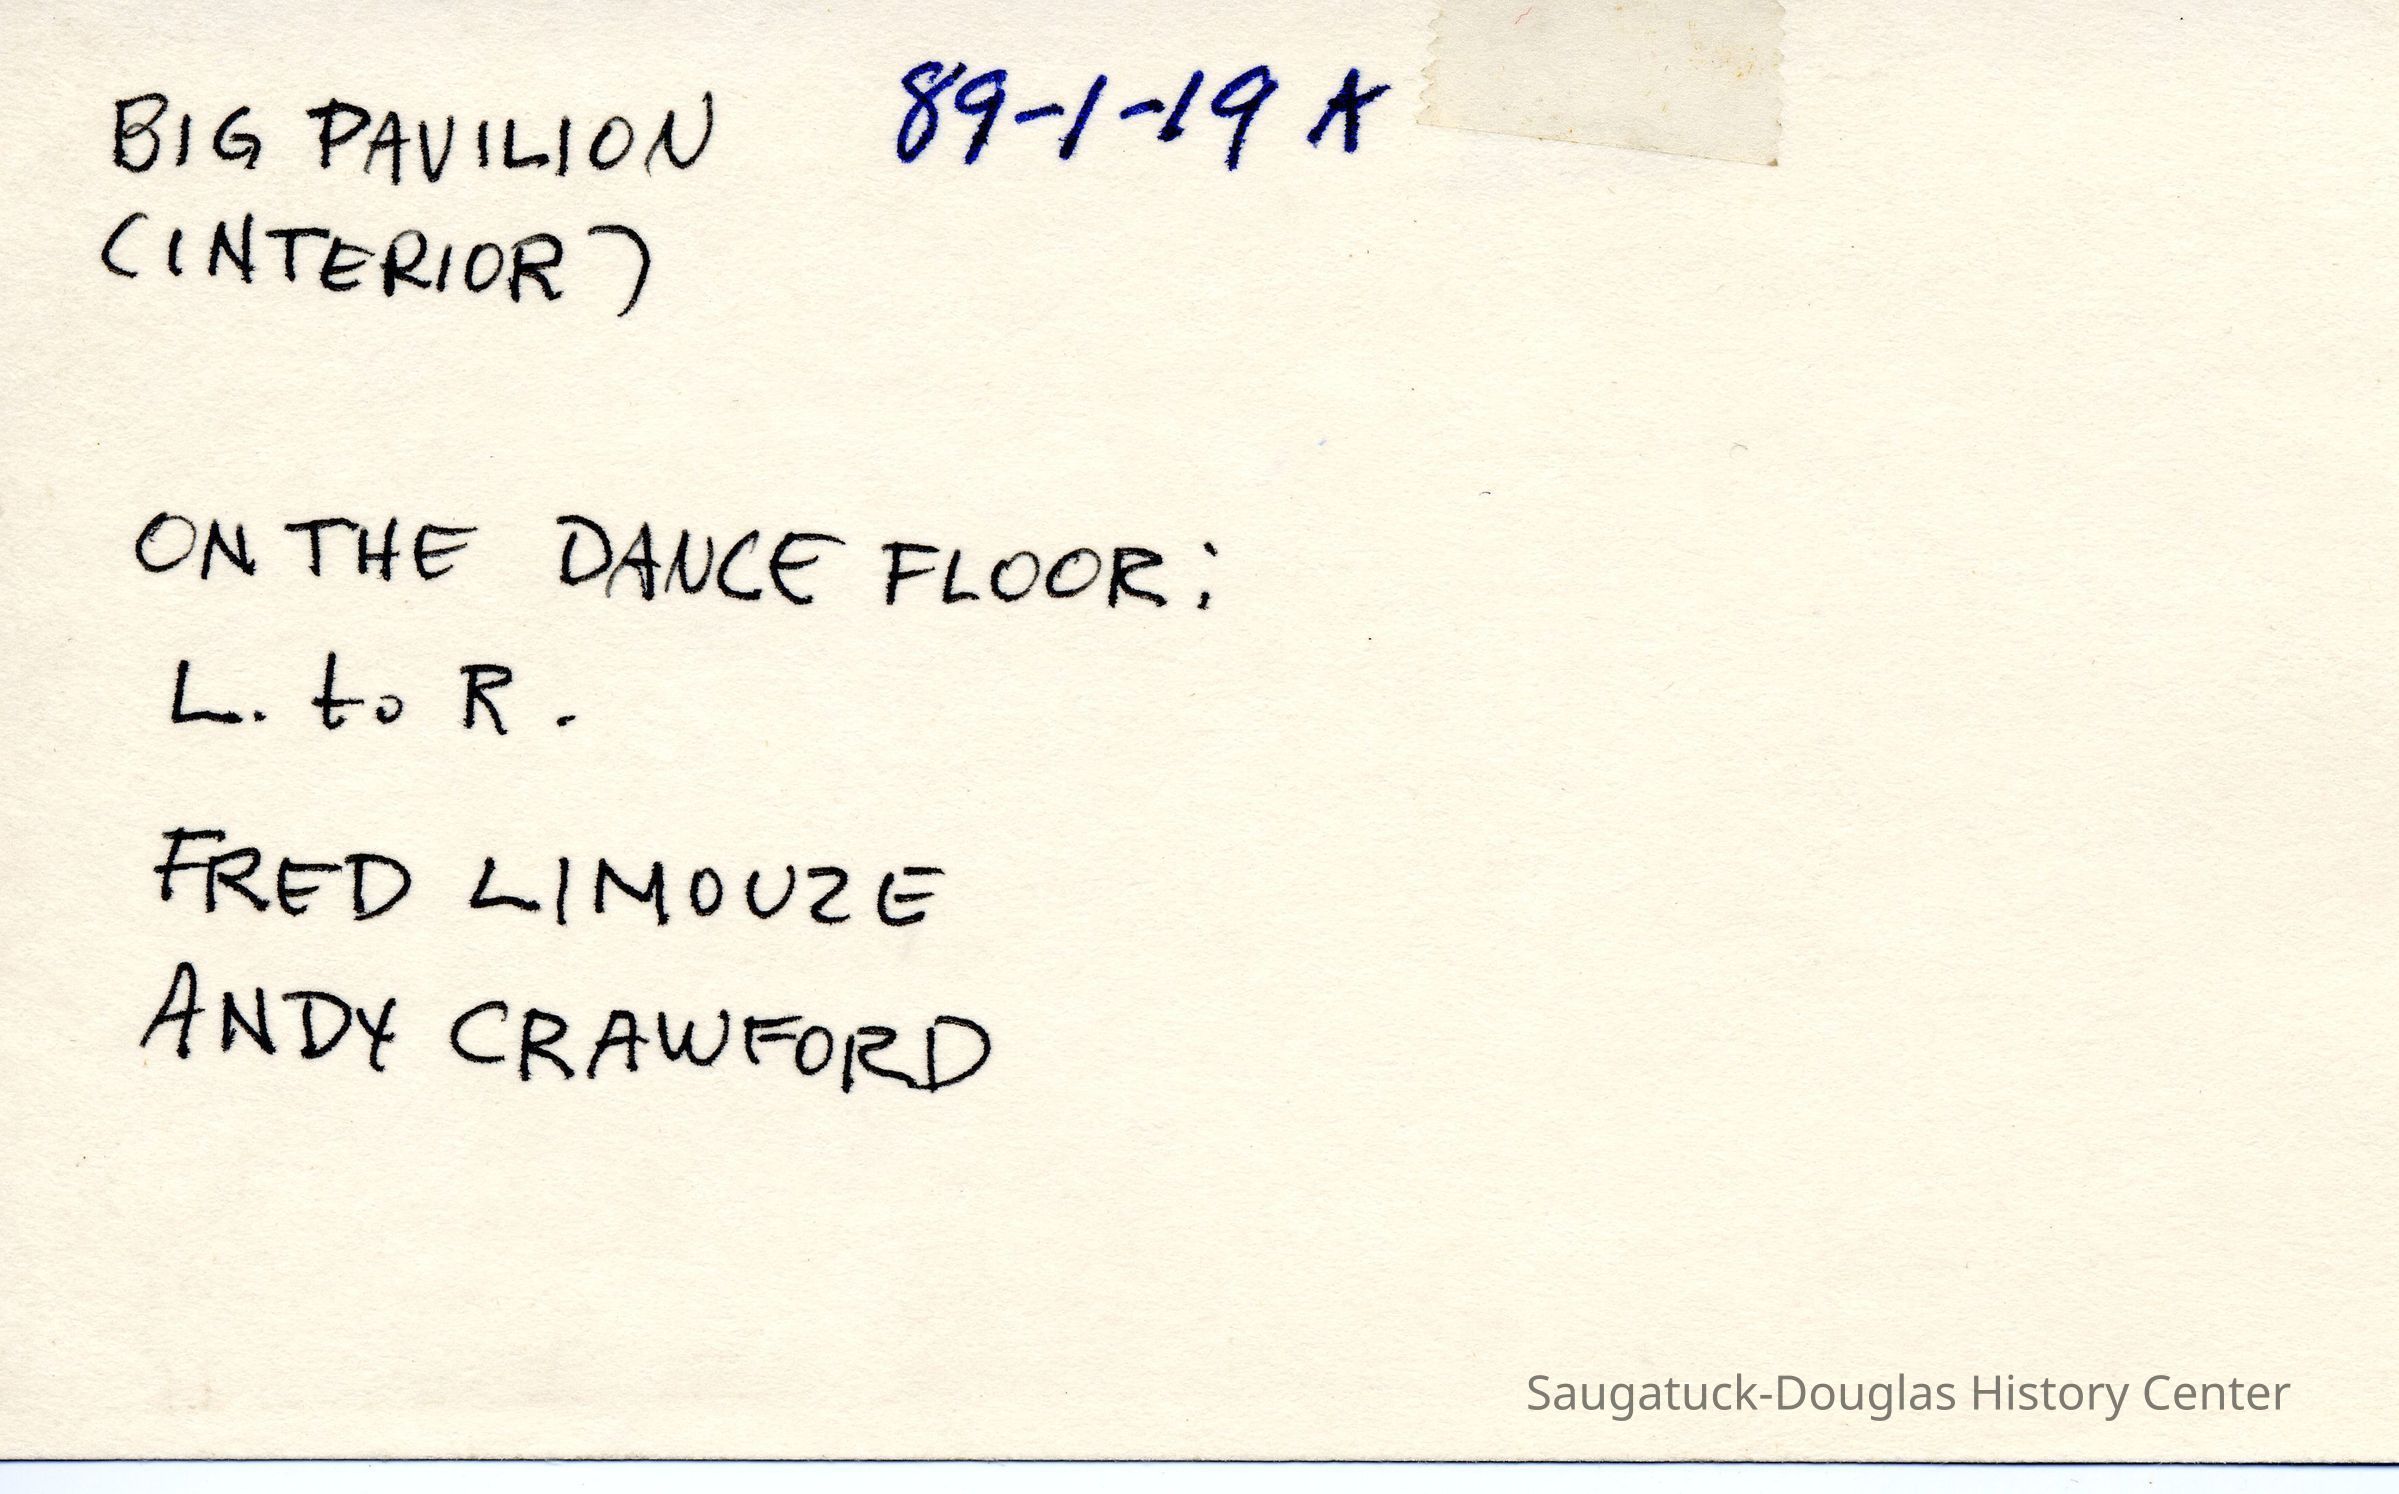 BIG PAVILION 89-1-19 A
(INTERIOR)
ON THE DANCE FLOOR:
L. to R.
FRED LIMOUZE
ANDY CRAWFORD
Saugatuck-Douglas History Center